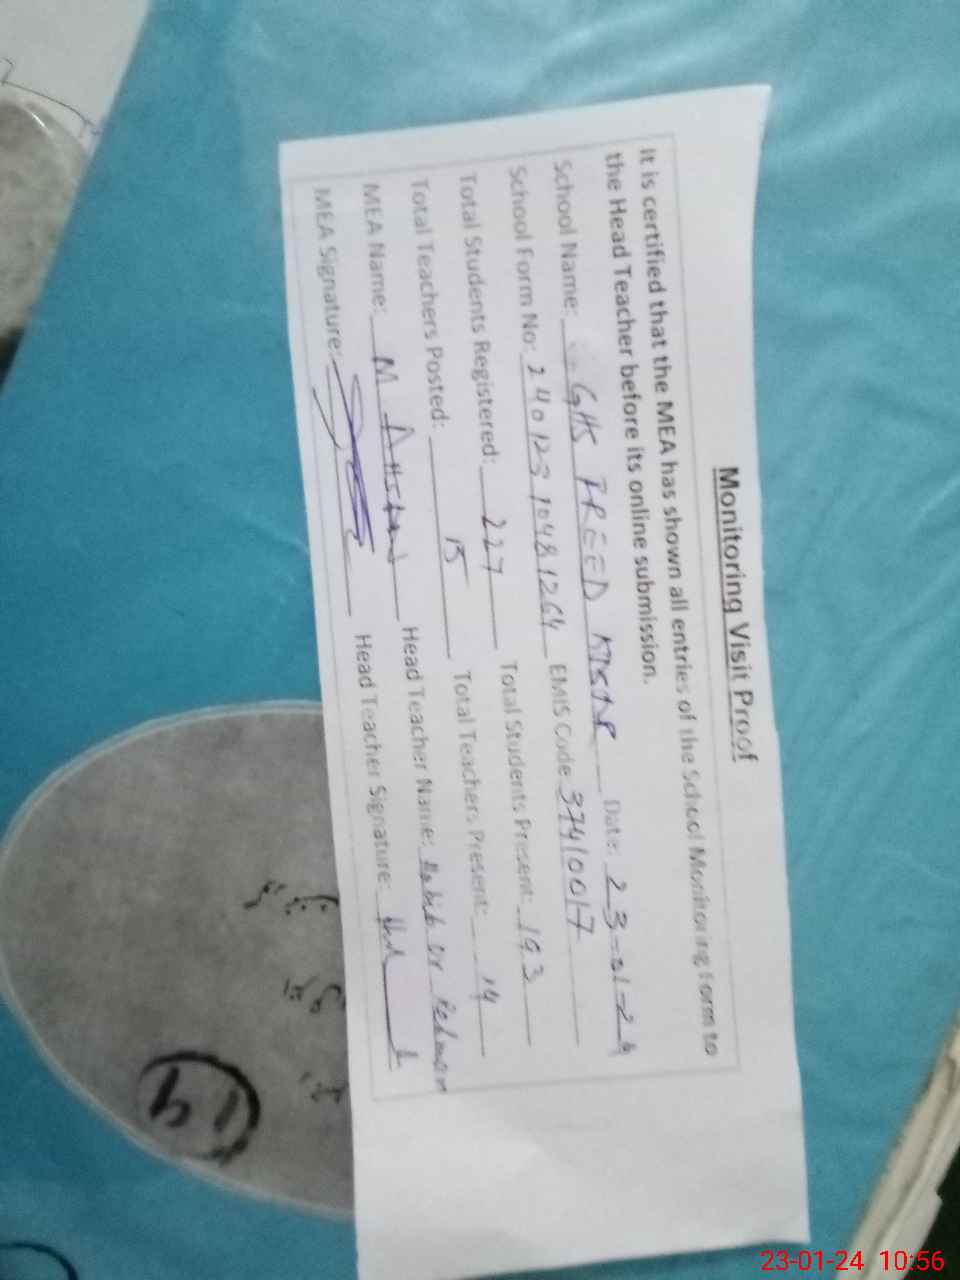 Monitoring Visit Proof
It is certified that the MEA has shown all entries of the School Monitoring Form to
the Head Teacher before its online submission.
School Name: GHS Date: 23-01-24
School Form No: 24012310481264 EMIS Code 37410017
Total Students Registered: 227 Total Students Present: 193
Total Teachers Posted: 15 Total Teachers Present: 14
MEA Name: M Head Teacher Name: Habib Ur Rehman
MEA Signature: Head Teacher Signature:
23-01-24 10:56